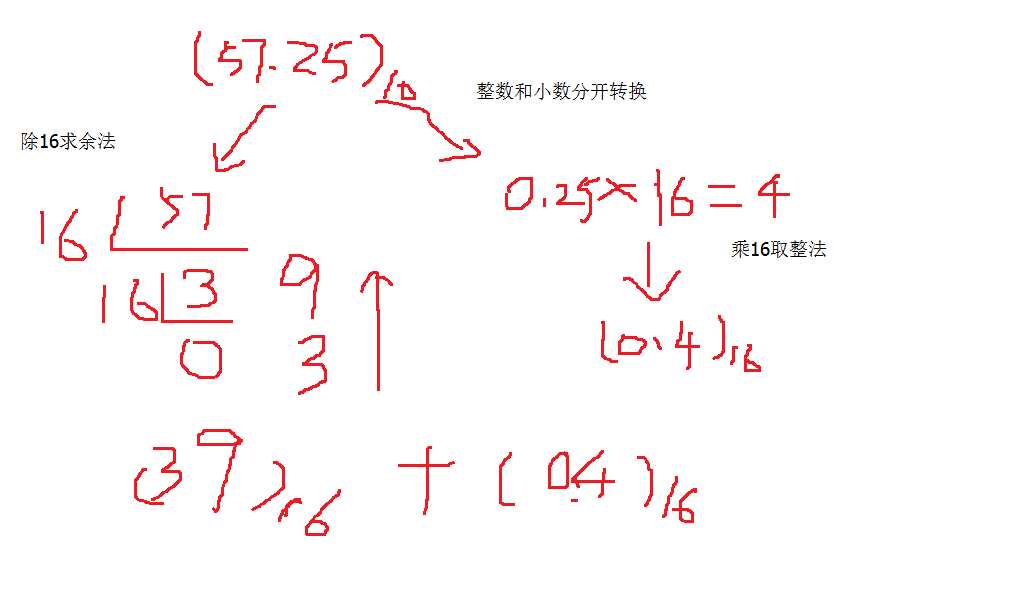 (57.25)10
整数和小数分开转换
除16求余法
0.25×16=4
16 57
乘16取整法
16 3 9
0 3
(0.4)16
(39)16 + (0.4)16